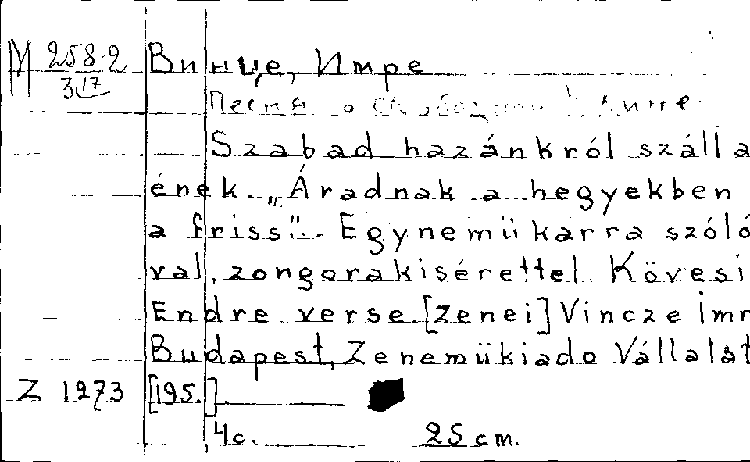 М 258-2 Винце, Имре
3/17
Песня о свободной
Szabad hazánkról száll a
ének. „Áradnak a hegyekben
a friss". Egynemü karra szóló
val, zongorakisérettel Kövesi
Endre verse [zenei] Vincze Imr
Budapest, Zenemükiado Vállalat
Z 1273 [195.]
4с. 25 cm.